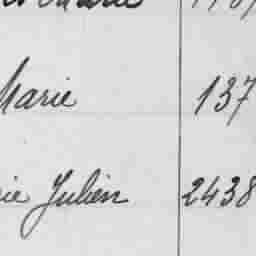 Marie 137
rie Julien 2438